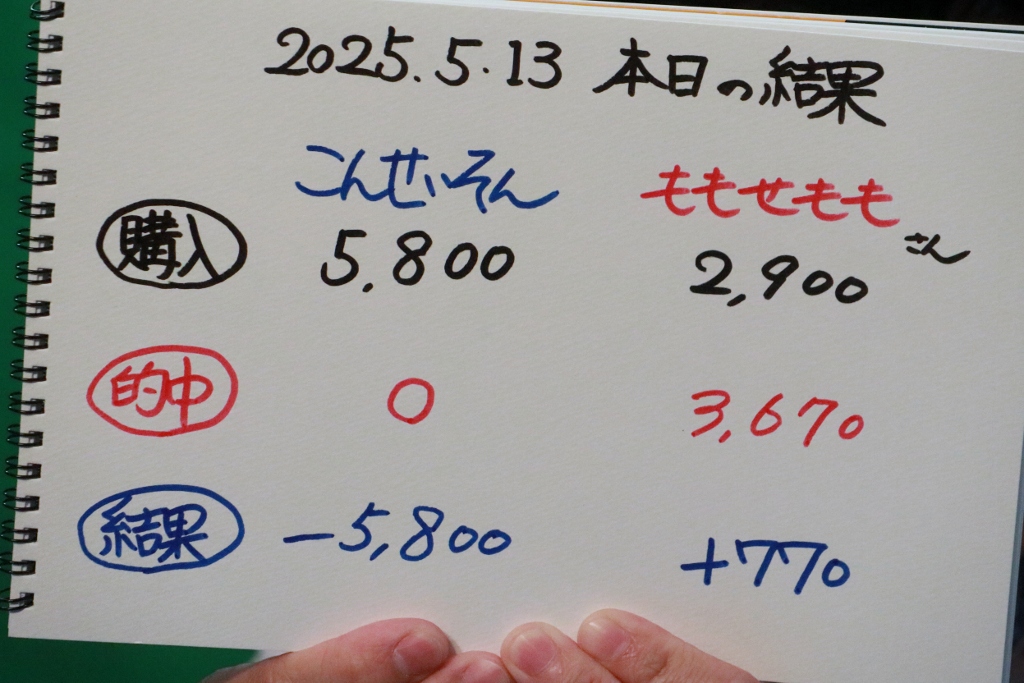 2025.5.13 本日の結果
こんせいそん ももせもも さん
購入 5,800 2,900
的中 0 3,670
結果 -5,800 +770